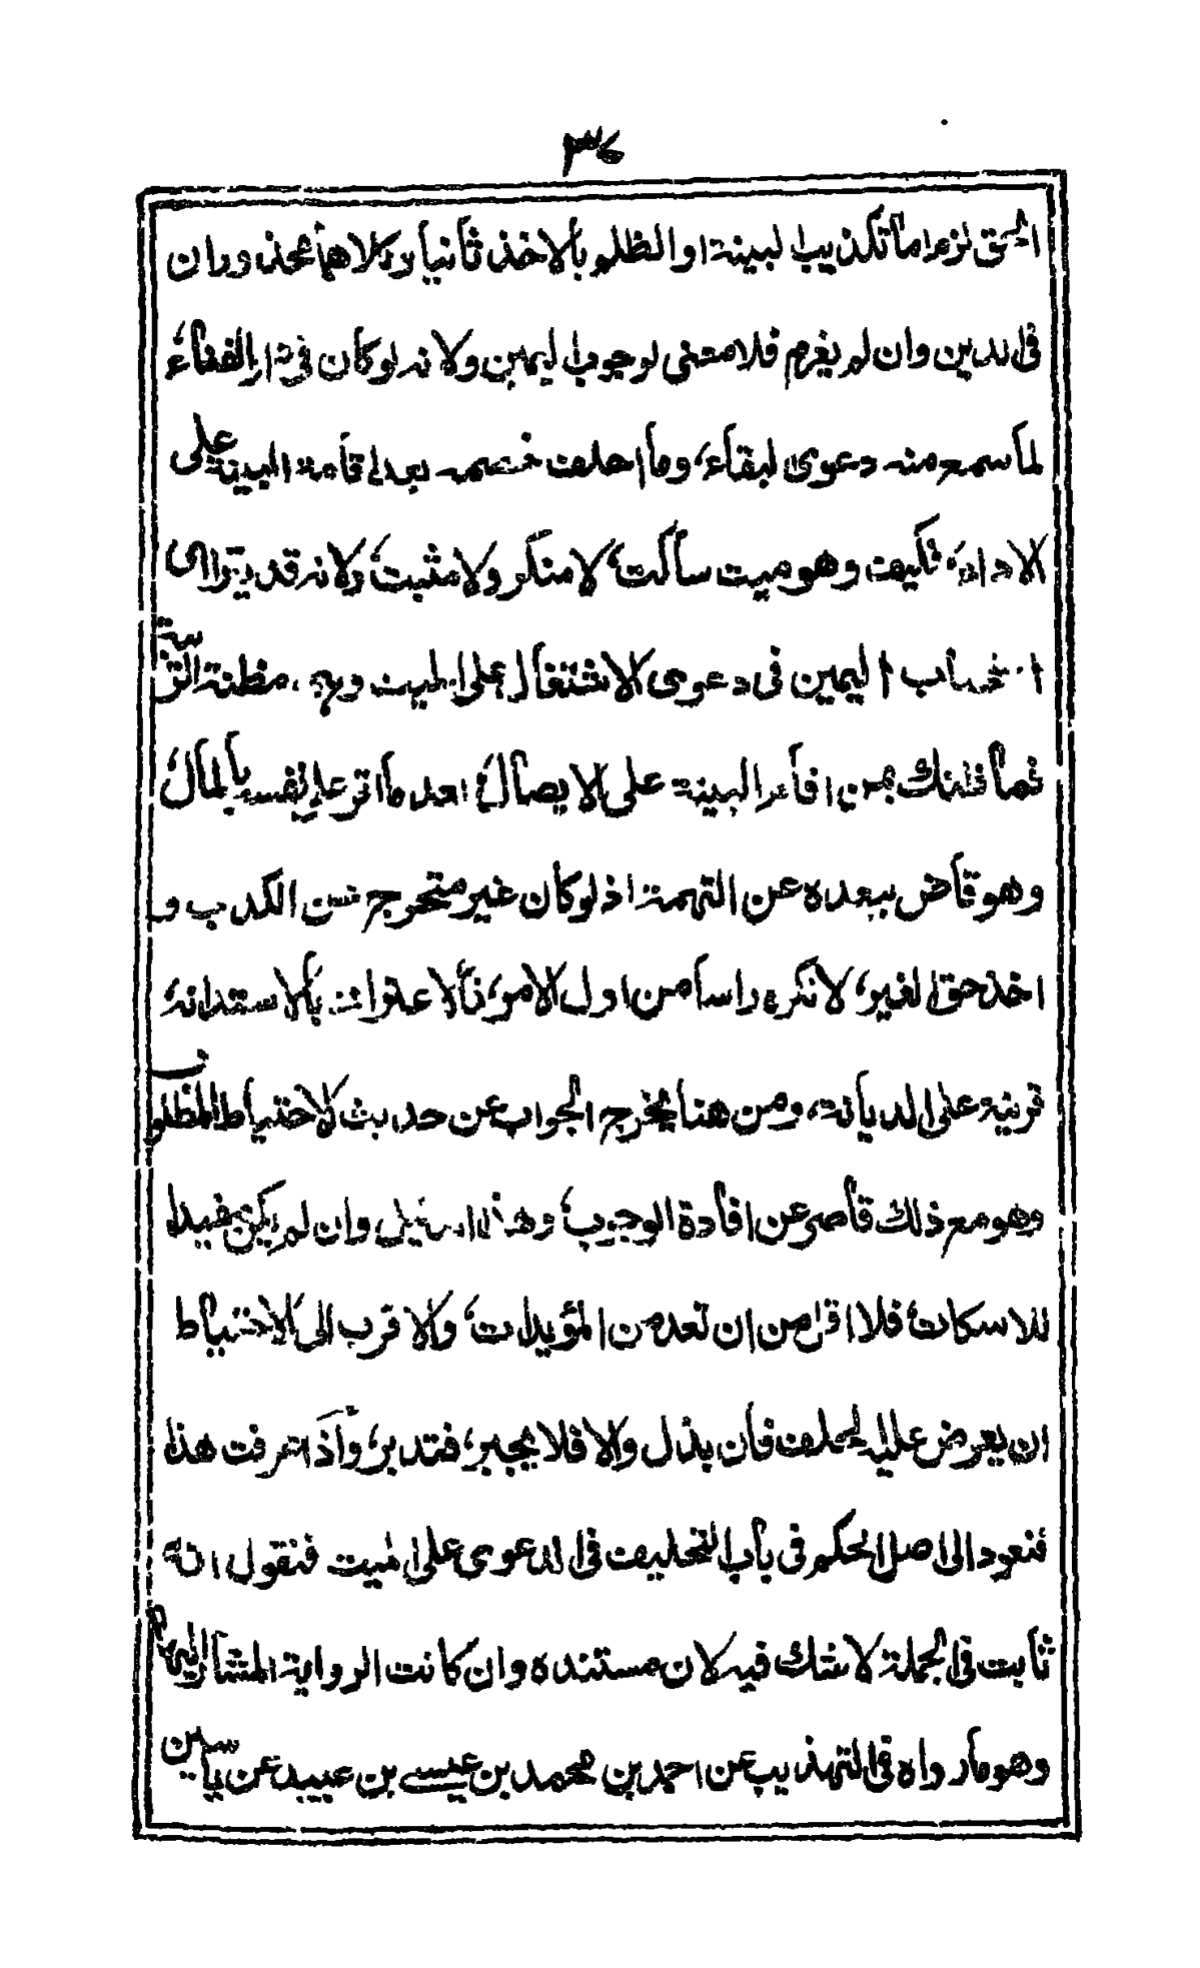 ٣٤
الحق لزم اما تكذيب البينة او الظلم بالاخذ ثانيا وكلاهما محذوران
في الدين وان لم يغرم فلا معنى لوجوب اليمين ولانه لو كان في دار القضاء
لما سمع منه دعوى البقاء، وما احلف خصمه بعد اقامة البينة على
الاداء، فكيف وهو ميت ساكت، لا منكر ولا مثبت، ولانه قد يترااى
انخساب اليمين في دعوى الاشتغال على الميت وهو مظنة
فما ظنك بمن اقام البينة على الايصال، بعد ما اقر على نفسه بالمال،
وهو قاض ببعده عن التهمة اذ لو كان غير متحرج عن الكذب و
اخذ حق الغير، لانكره راسا من اول الامر، فالاعتراف بالاستدانة،
قرينة على الديانة، ومن هنا يخرج الجواب عن حديث الاحتياط المظنون
وهو مع ذلك قاصر عن افادة الوجوب، وهذا وان لم يكن مفيدا
للاسكات، فلا اقل من ان تعد من المؤيدات، والاقرب الى الاحتياط
ان يعرض عليه الحلف فان بذل والا فلا يجبر، فتدبر، واذا عرفت هذا
فنعود الى اصل الحكم في باب التحليف في الدعوى على الميت فنقول انه
ثابت في الجملة لا شك فيه لان مستنده وان كانت الرواية المشار اليها
وهو ما رواه في التهذيب عن احمد بن محمد بن عيسى بن عبيد عن ياسين